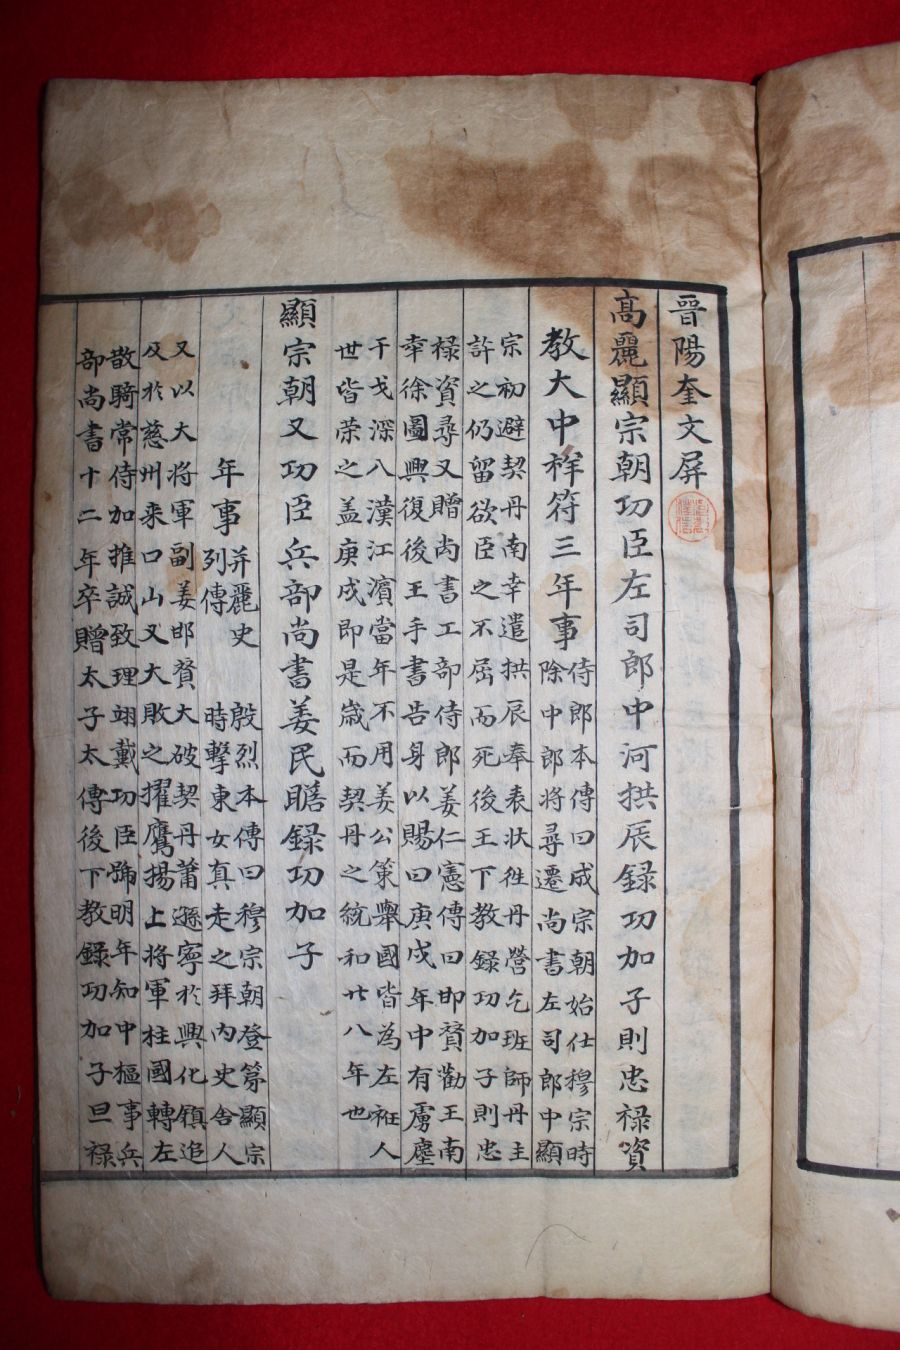 晉陽奎文屏
高麗顯宗朝功臣左司郎中河拱辰録功加子則忠祿資
教大中祥符三年事
侍郎本傳曰成宗朝始仕穆宗時
除中郎將尋遷尚書左司郎中顯
宗初避契丹南幸遣拱辰奉表状徃丹營乞班師丹主
許之仍留欲臣之不屈而死後王下教録功加子則忠
禄資尋又贈尚書工部侍郎姜仁憲傳曰邯賛勸王南
幸徐圖興復後王手書告身以賜曰庚戌年中有虜塵
干戈深入漢江濱當年不用姜公策舉國皆為左袵人
世皆荣之盖庚戌即是歳而契丹之統和廿八年也
顯宗朝又功臣兵部尚書姜民瞻録功加子
年事
并麗史
列傳
殷烈本傳曰穆宗朝登第顯宗
時擊東女真走之拜内史舍人
又以大將軍副姜邯賛大破契丹蕭遜寧於興化鎮追
及於慈州来口山又大敗之擢鷹揚上將軍柱國轉左
散騎常侍加推誠致理翊戴功臣號明年知中樞事兵
部尚書十二年卒贈太子太傅後下教録功加子旦禄